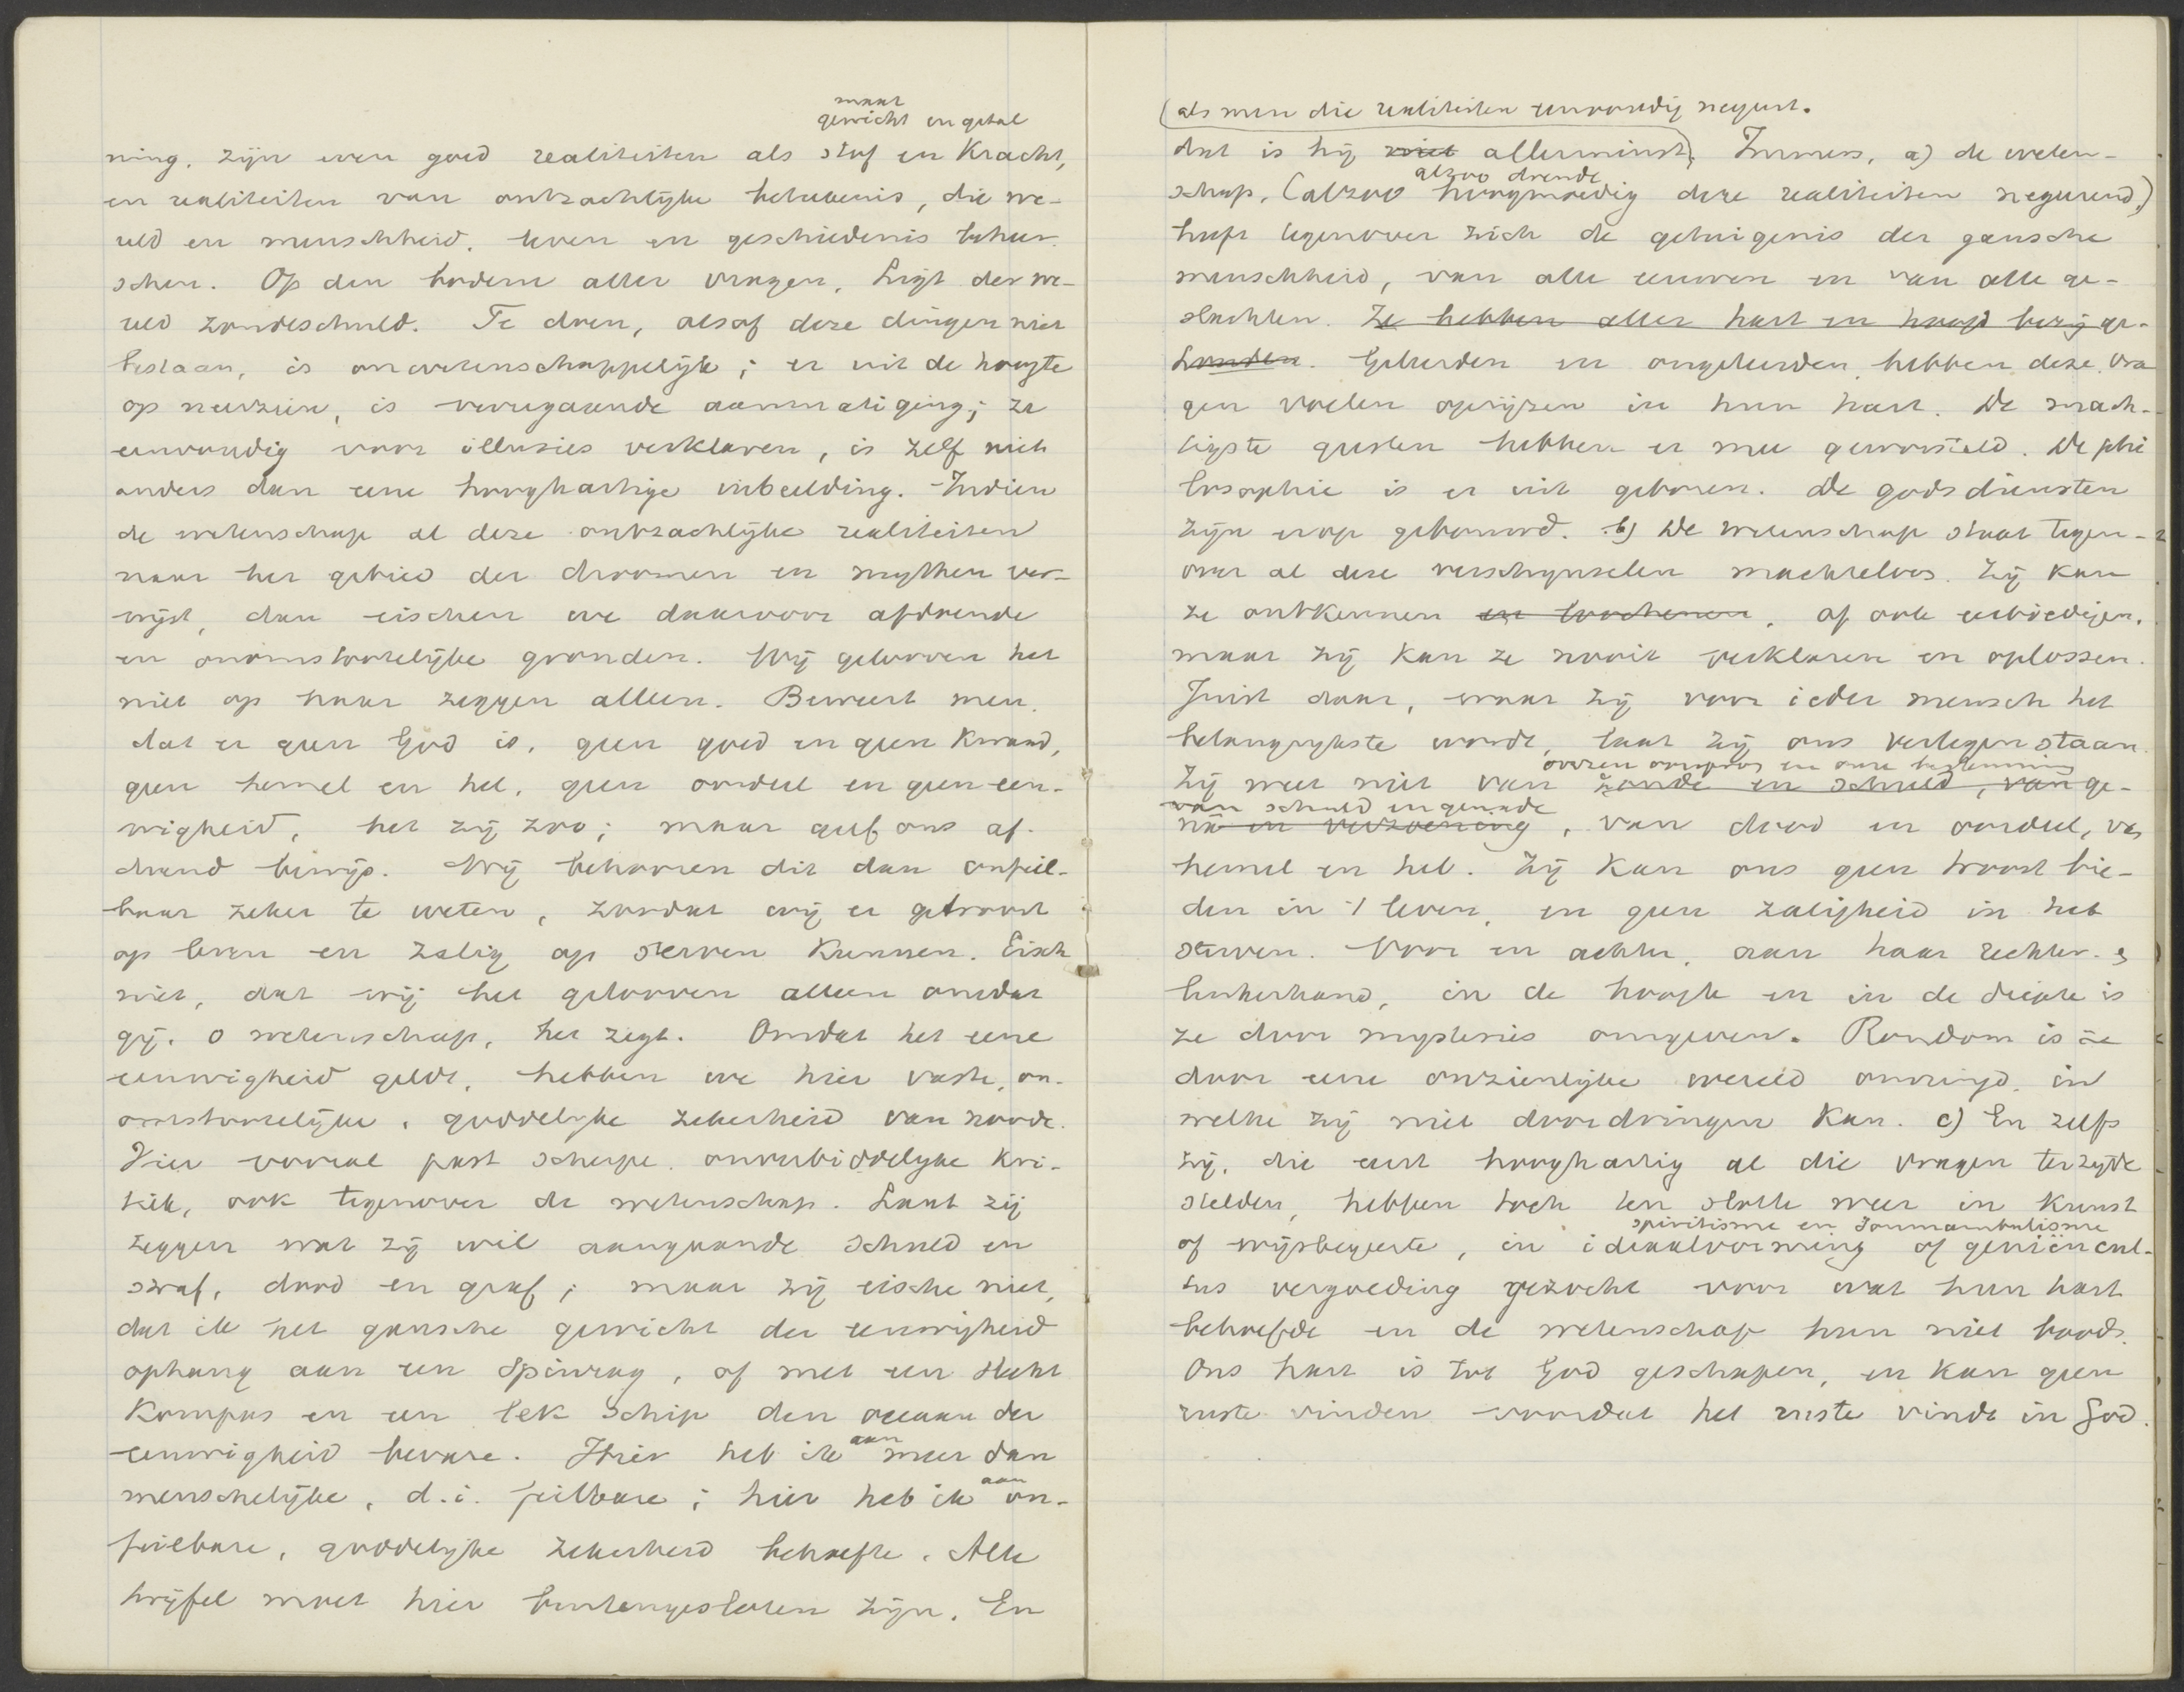 maat
gewicht en getal
ning, zijn even goed realiteiten als stof en kracht,
en realiteiten van ontzachlijke beteekenis, die we-
reld en menschheid, leven en geschiedenis beheer-
schen. Op den bodem aller vragen, ligt der we-
reld zondeschuld. Te doen, alsof deze dingen niet
bestaan, is onwetenschappelijk; er uit de hoogte
op neerzien, is verregaande aanmatiging; ze
eenvoudig voor illusies verklaren, is zelf niet
anders dan eene hooghartige inbeelding. Indien
de wetenschap al deze ontzachlijke realiteiten
naar het gebied der droomen en mythen ver-
wijst, dan eischen we daarvoor afdoende
en onomstootelijke gronden. Wij gelooven het
niet op haar zeggen alleen. Beweert men,
dat er geen God is, geen goed en geen kwaad,
geen hemel en hel, geen oordeel en geen eeu-
wigheid, het zij zoo; maar geef ons af-
doend bewijs. Wij behooren dit dan onfeil-
baar zeker te weten, zoodat wij er getroost
op leven en zalig op sterven kunnen. Eisch
niet, dat wij het gelooven alleen omdat
gij, o wetenschap, het zegt. Omdat het eene
eeuwigheid geldt, hebben we hier vaste, on-
omstootelijke, goddelijke zekerheid van noode.
Hier vooral past scherpe, onverbiddelijke kri-
tiek, ook tegenover de wetenschap. Laat zij
zeggen wat zij wil aangaande schuld en
straf, dood en graf; maar zij eische niet,
dat ik het gansche gewicht der eeuwigheid
ophang aan een spinrag, of met een slecht
kompas en een lek schip den oceaan der
eeuwigheid bevare. Hier heb ik aan meer dan
menschelijke, d.i. feilbare; hier heb ik aan on-
feilbare, goddelijke zekerheid behoefte. Alle
twijfel moet hier buitengesloten zijn. En
(als men die realiteiten eenvoudig negeert.
dat is hij niet allerminst). Immers, a) de weten-
alzoo doende
schap, (alzoo hoogmoedig deze realiteiten negeerend,)
heeft tegenover zich de getuigenis der gansche
menschheid, van alle eeuwen en van alle ge-
slachten. Ze hebben aller hart en hoofd bezig ge-
houden. Geleerden en ongeleerden hebben deze vra
gen voelen oprijzen in hun hart. De mach-
tigste geesten hebben er mee geworsteld. De phi
losophie is er uit geboren. De godsdiensten
zijn erop gebouwd. b) De wetenschap staat tegen-
over al deze verschijnselen machteloos. Zij kan
ze ontkennen en loochenen, of ook eerbiedigen,
maar zij kan ze nooit verklaren en oplossen.
Juist daar, waar zij voor ieder mensch het
belangrijkste wordt, laat zij ons verlegen staan.
over een oorsprong en onze bestemming
Zij weet niet van zonde en schuld, van ge-
van schuld en genade
nâ en verzoening, van dood en oordeel, van
hemel en hel. Zij kan ons geen troost bie-
den in 't leven, en geen zaligheid in het
sterven. Voor en achter, aan haar rechter- en
linkerhand, in de hoogte en in de diepte is
ze door mysteries omgeven. Rondom is ze
door eene onzienlijke wereld omringd, in
welke zij niet doordringen kan. c) En zelfs
zij, die eerst hooghartig al die vragen terzijde
stelden, hebben toch ten slotte weer in kunst
spiritisme en somnambulisme
of wijsbegeerte, in ideaalvorming of genieëncul-
tus vergoeding gezocht voor wat hun hart
behoefde en de wetenschap hun niet bood.
Ons hart is tot God geschapen, en kan geen
ruste vinden voordat het ruste vindt in God.